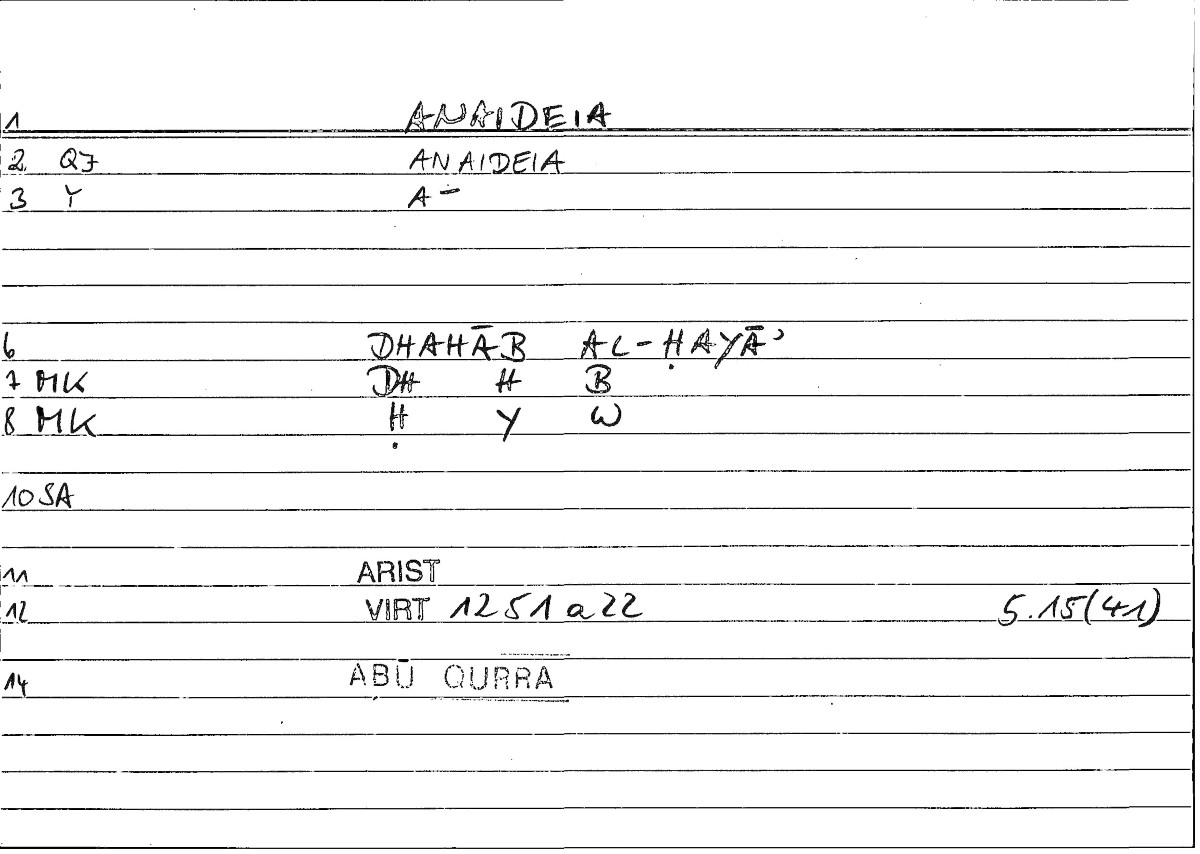 1 ANAIDEIA
2 QJ ANAIDEIA
3 Y A-
6 DHAHĀB AL-ḤAYĀʾ
7 MK DH H B
8 MK Ḥ Y W
10 SA
11 ARIST
12 VIRT 1251a22 5.15(41)
14 ABŪ QURRA